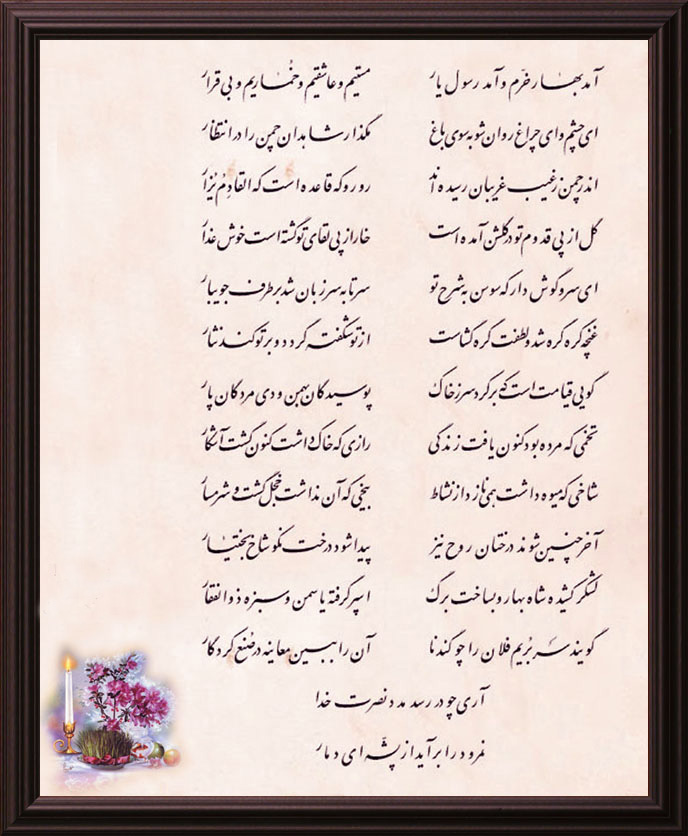 آمد بهار خرّم و آمد رسول یار مستیم و عاشقیم و خُماریم و بی قرار
ای چشم وای چراغ روان شو به سوی باغ مگذار شاهدان چمن را در انتظار
اندر چمن زغیب غریبان رسیده اند رو رو که قاعده است که القادِمُ یُزار
گل از پی قدوم تو در گلشن آمده است خار از پی لقای تو گشته است خوش عذار
ای سرو گوش دار که سوسن به شرح تو سر تا به سر زبان شد بر طرف جویبار
غنچه گره گره شد و لطفت گره گشاست از تو شکفته گردد و بر تو کند نثار
گویی قیامت است که برکرد سر زخاک پوسیدگان بهمن و دی مردگان پار
تخمی که مرده بود کنون یافت زندگی رازی که خاک داشت کنون گشت آشکار
شاخی که میوه داشت همی نازد از نشاط بیخی که آن نداشت خجل گشت و شرمسار
آخر چنین شوند درختان روح نیز پیدا شود درخت نکو شاخ بختیار
لشکر کشیده شاه بهار و بساخت برگ اسپر گرفته یاسمن و سبزه ذوالفقار
گویند سَر بُریم فلان را چو گندنا آن را ببین معاینه در صُنع کردگار
آری چو در رسد مدد نصرت خدا
نمرود را برآید از پشّه ای دمار